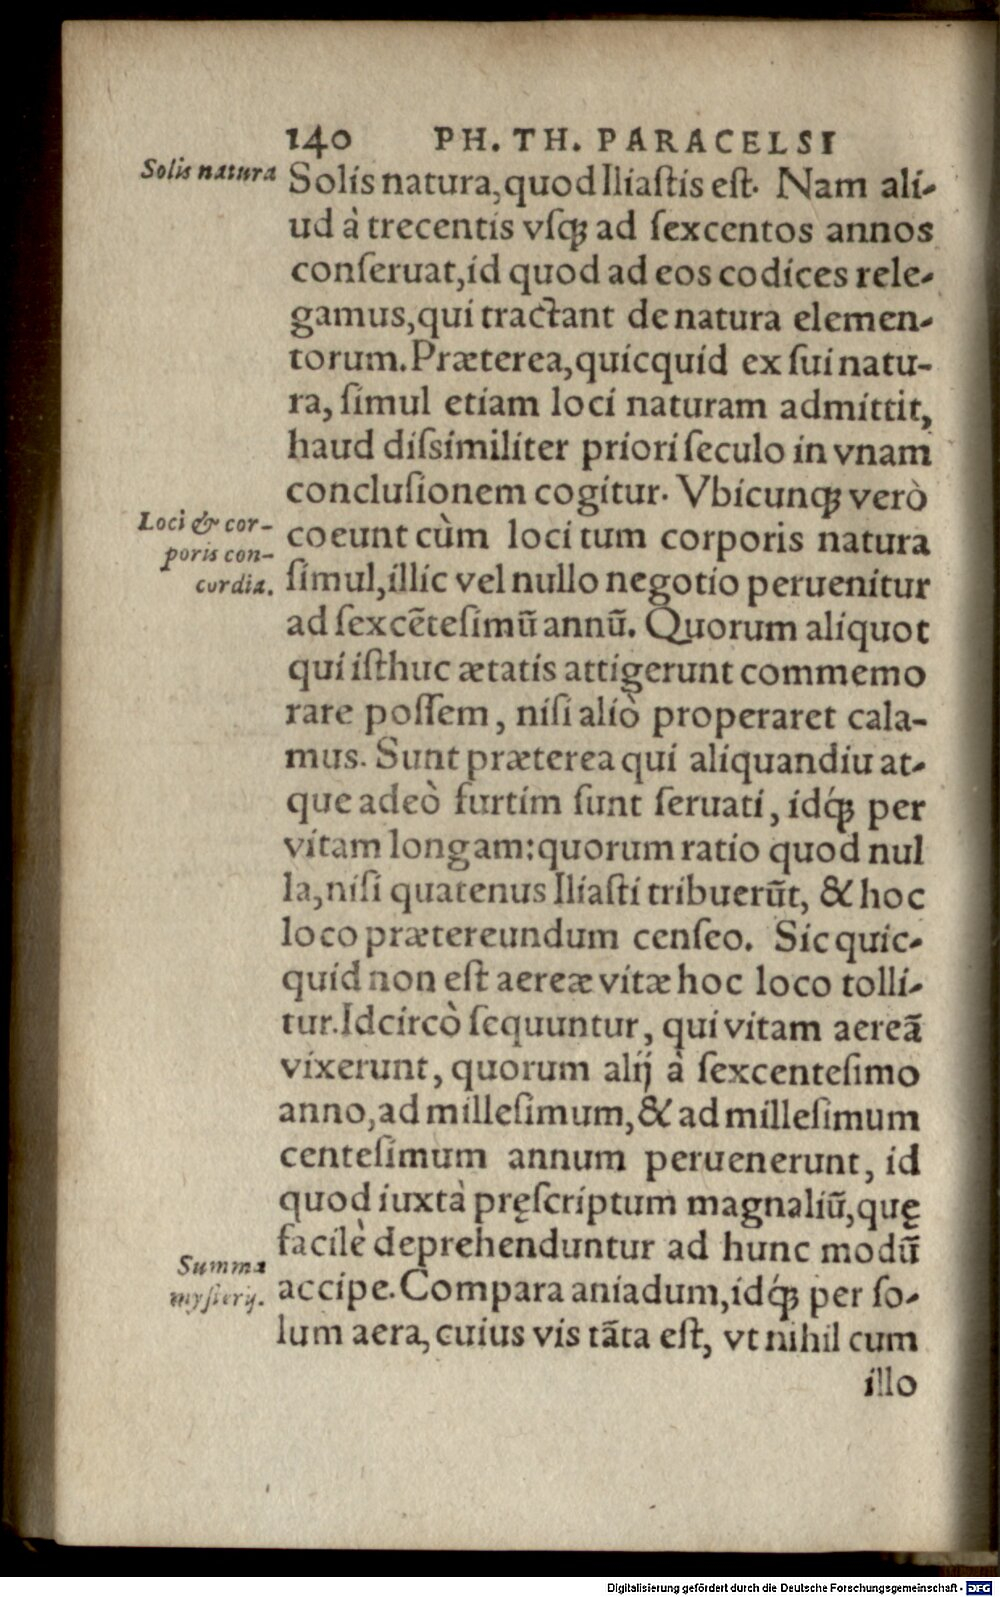 140 PH. TH. PARACELSI
Solis natura
Solis natura, quod Iliastis est. Nam ali-
ud à trecentis vsq; ad sexcentos annos
conseruat, id quod ad eos codices rele-
gamus, qui tractant de natura elemen-
torum. Præterea, quicquid ex sui natu-
ra, simul etiam loci naturam admittit,
haud dissimiliter priori seculo in vnam
conclusionem cogitur. Vbicunq; verò
Loci & cor-
poris con-
cordia.
coeunt cùm loci tum corporis natura
simul, illic vel nullo negotio peruenitur
ad sexcētesimū annū. Quorum aliquot
qui isthuc ætatis attigerunt commemo
rare possem, nisi aliò properaret cala-
mus. Sunt præterea qui aliquandiu at-
que adeò furtim sunt seruati, idq́; per
vitam longam: quorum ratio quod nul
la, nisi quatenus Iliasti tribuerūt, & hoc
loco prætereundum censeo. Sic quic-
quid non est aereæ vitæ hoc loco tolli-
tur. Idcircò sequuntur, qui vitam aereā
vixerunt, quorum alij à sexcentesimo
anno, ad millesimum, & ad millesimum
centesimum annum peruenerunt, id
quod iuxtà pręscriptum magnaliū, quę
facilè deprehenduntur ad hunc modū
Summa
mysterij.
accipe. Compara aniadum, idq́; per so-
lum aera, cuius vis tāta est, vt nihil cum
illo
Digitalisierung gefördert durch die Deutsche Forschungsgemeinschaft - DFG